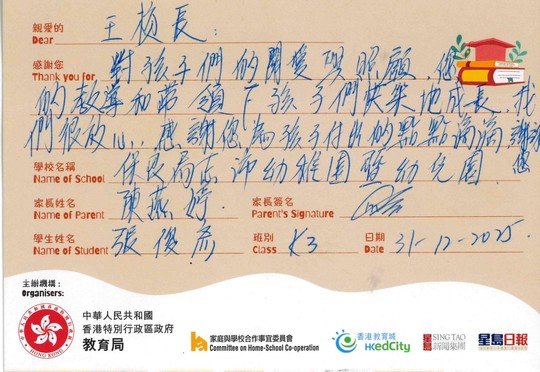 親愛的
Dear 王校長：
感謝您
Thank you for 對孩子們的關愛與照顧，您
的教導和帶領下孩子們快樂地成長，我
們很放心，感謝您為孩子付出的點點滴滴，謝謝
您
學校名稱
Name of School 保良局志沛幼稚園暨幼兒園
家長姓名 家長簽名
Name of Parent 陳燕婷 Parent's Signature
學生姓名 班別 日期
Name of Student 張俊 Class K3 Date 31-12-2025.
主辦機構：
Organisers:
中華人民共和國
香港特別行政區政府
教育局
HONG KONG
家庭與學校合作事宜委員會
Committee on Home-School Co-operation
香港教育城
HKedCity
星島 SING TAO
新聞集團
星島日報